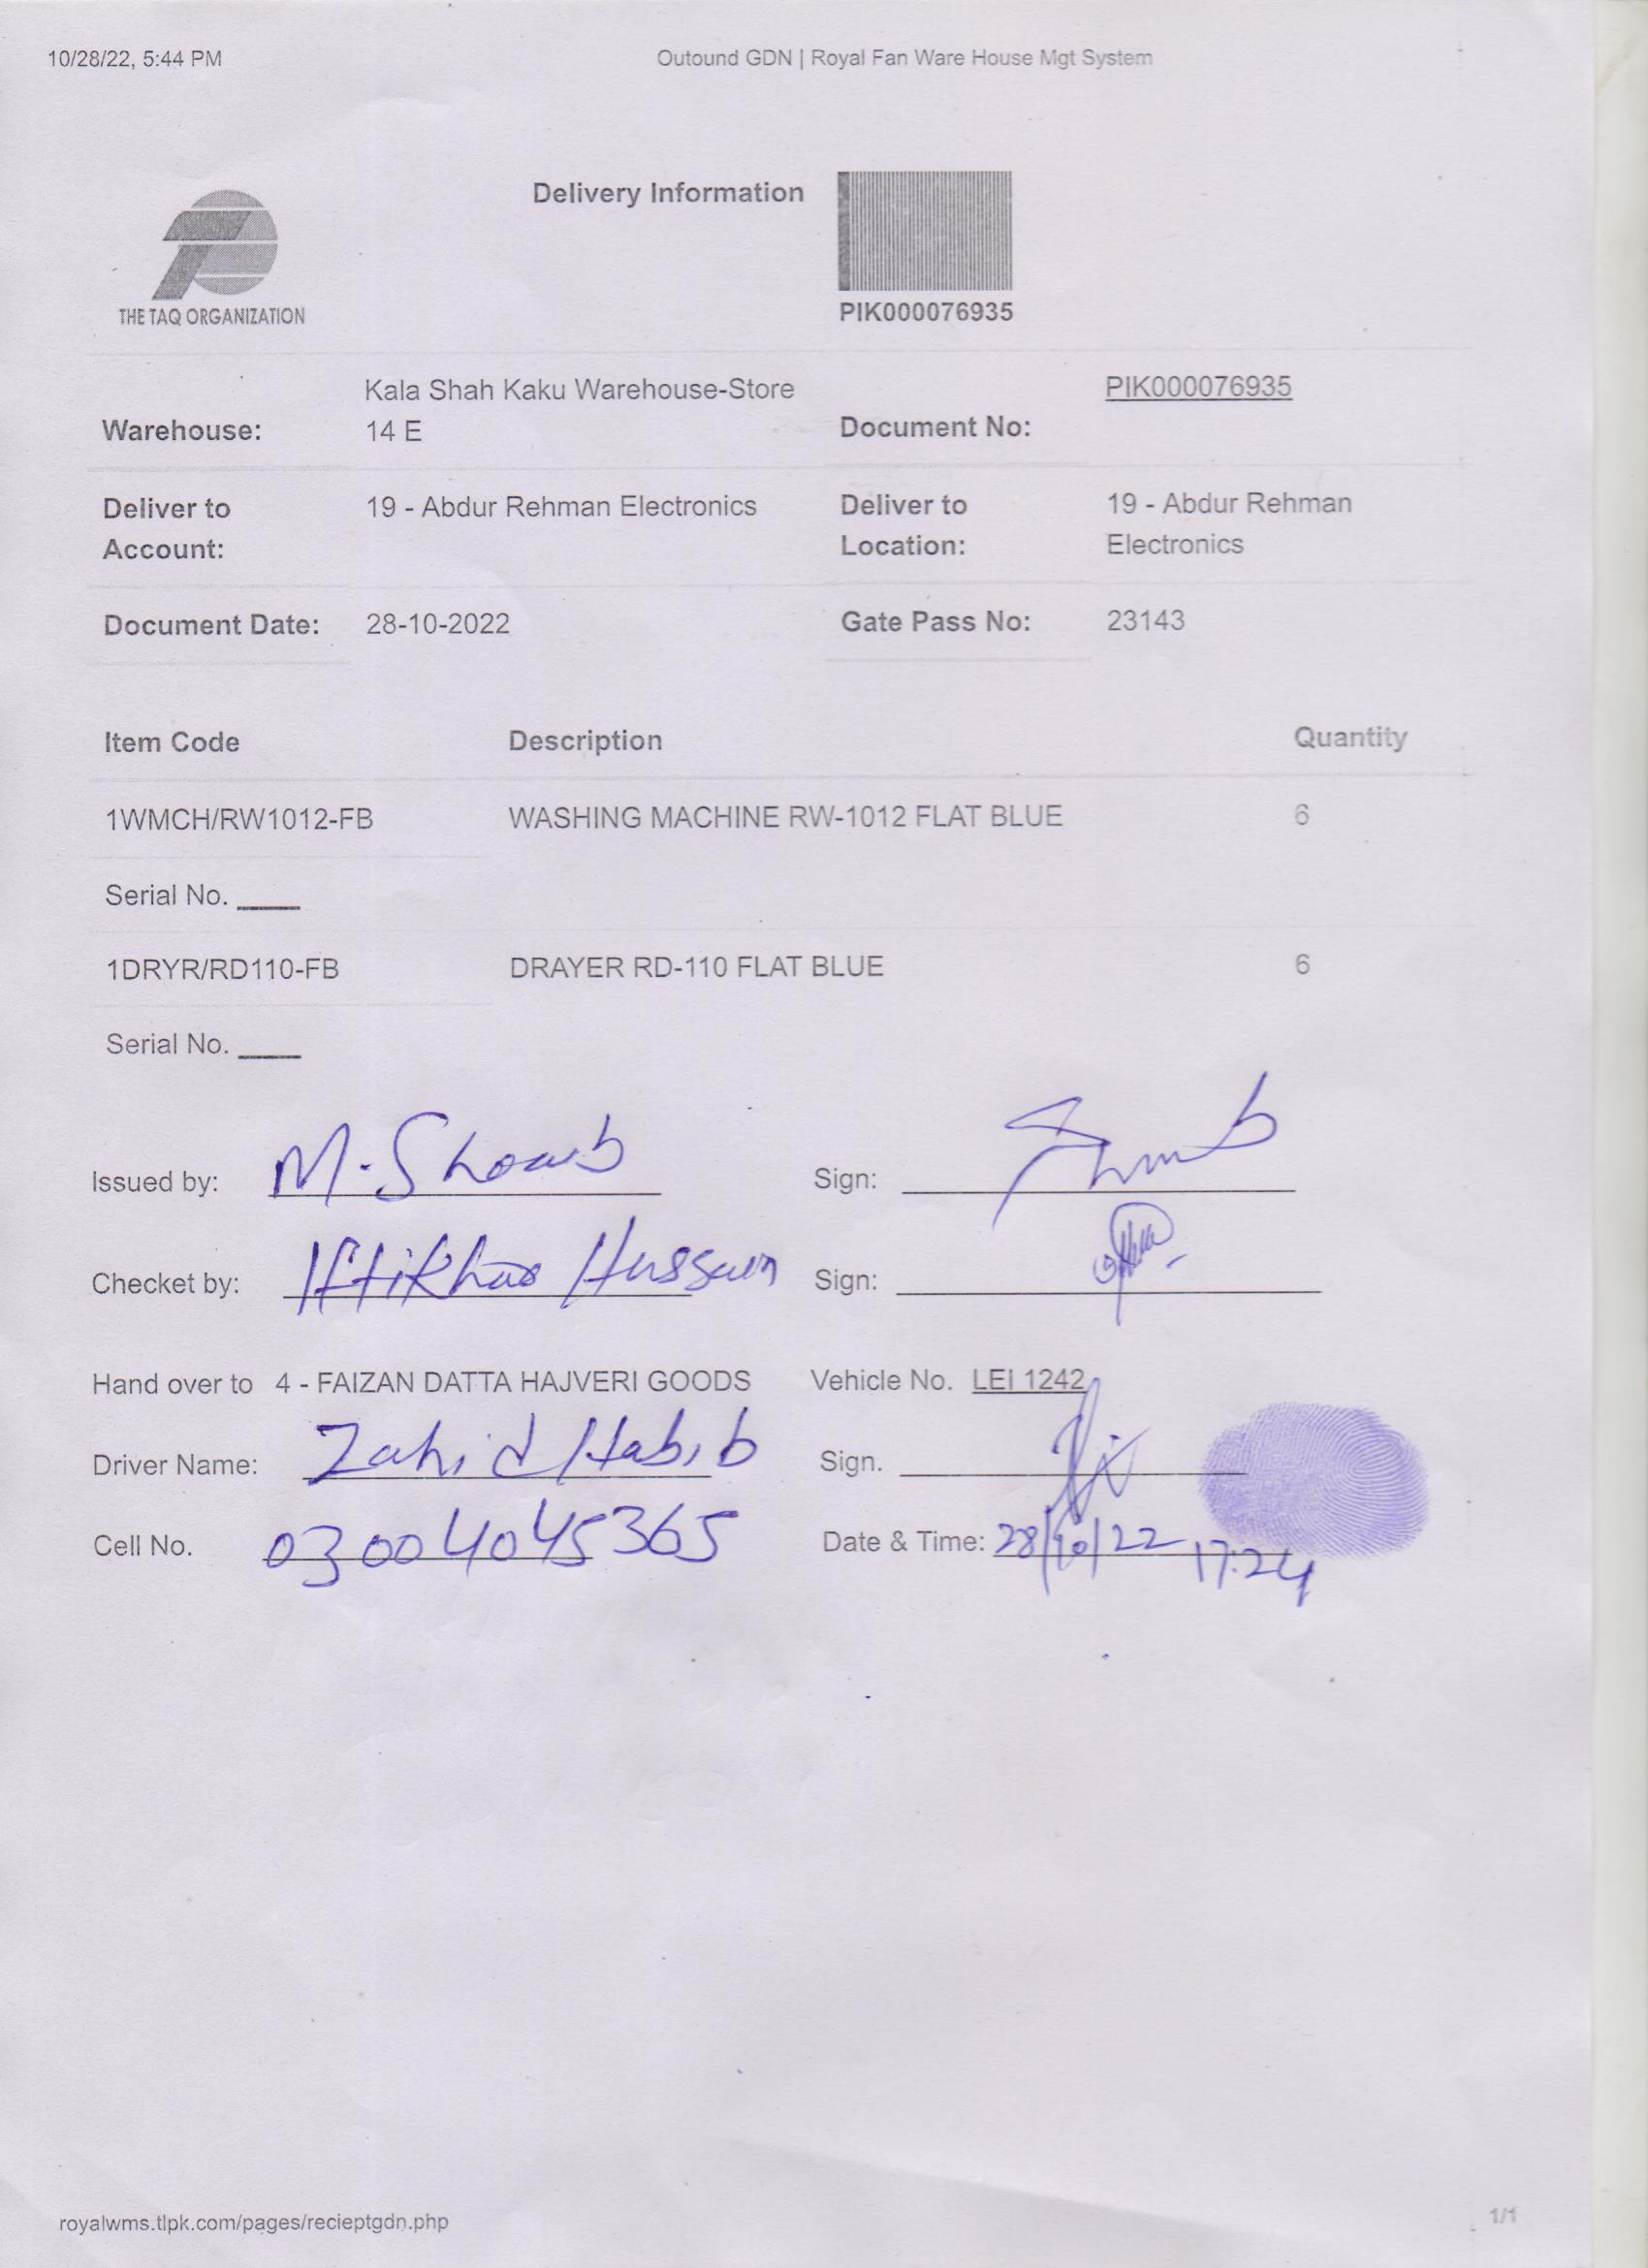 10/28/22, 5:44 PM Outound GDN | Royal Fan Ware House Mgt System
Delivery Information
THE TAQ ORGANIZATION
PIK000076935
Kala Shah Kaku Warehouse-Store PIK000076935
Warehouse: 14 E Document No:
Deliver to 19 - Abdur Rehman Electronics Deliver to 19 - Abdur Rehman
Account: Location: Electronics
Document Date: 28-10-2022 Gate Pass No: 23143
Item Code Description Quantity
1WMCH/RW1012-FB WASHING MACHINE RW-1012 FLAT BLUE 6
Serial No. ____
1DRYR/RD110-FB DRAYER RD-110 FLAT BLUE 6
Serial No. ____
Issued by: M. Shoaib Sign:
Checket by: Iftikhar Hussain Sign:
Hand over to 4 - FAIZAN DATTA HAJVERI GOODS Vehicle No. LEI 1242
Driver Name: Zahid Habib Sign.
Cell No. 03004045365 Date & Time: 28/10/22 17:24
royalwms.tlpk.com/pages/recieptgdn.php 1/1